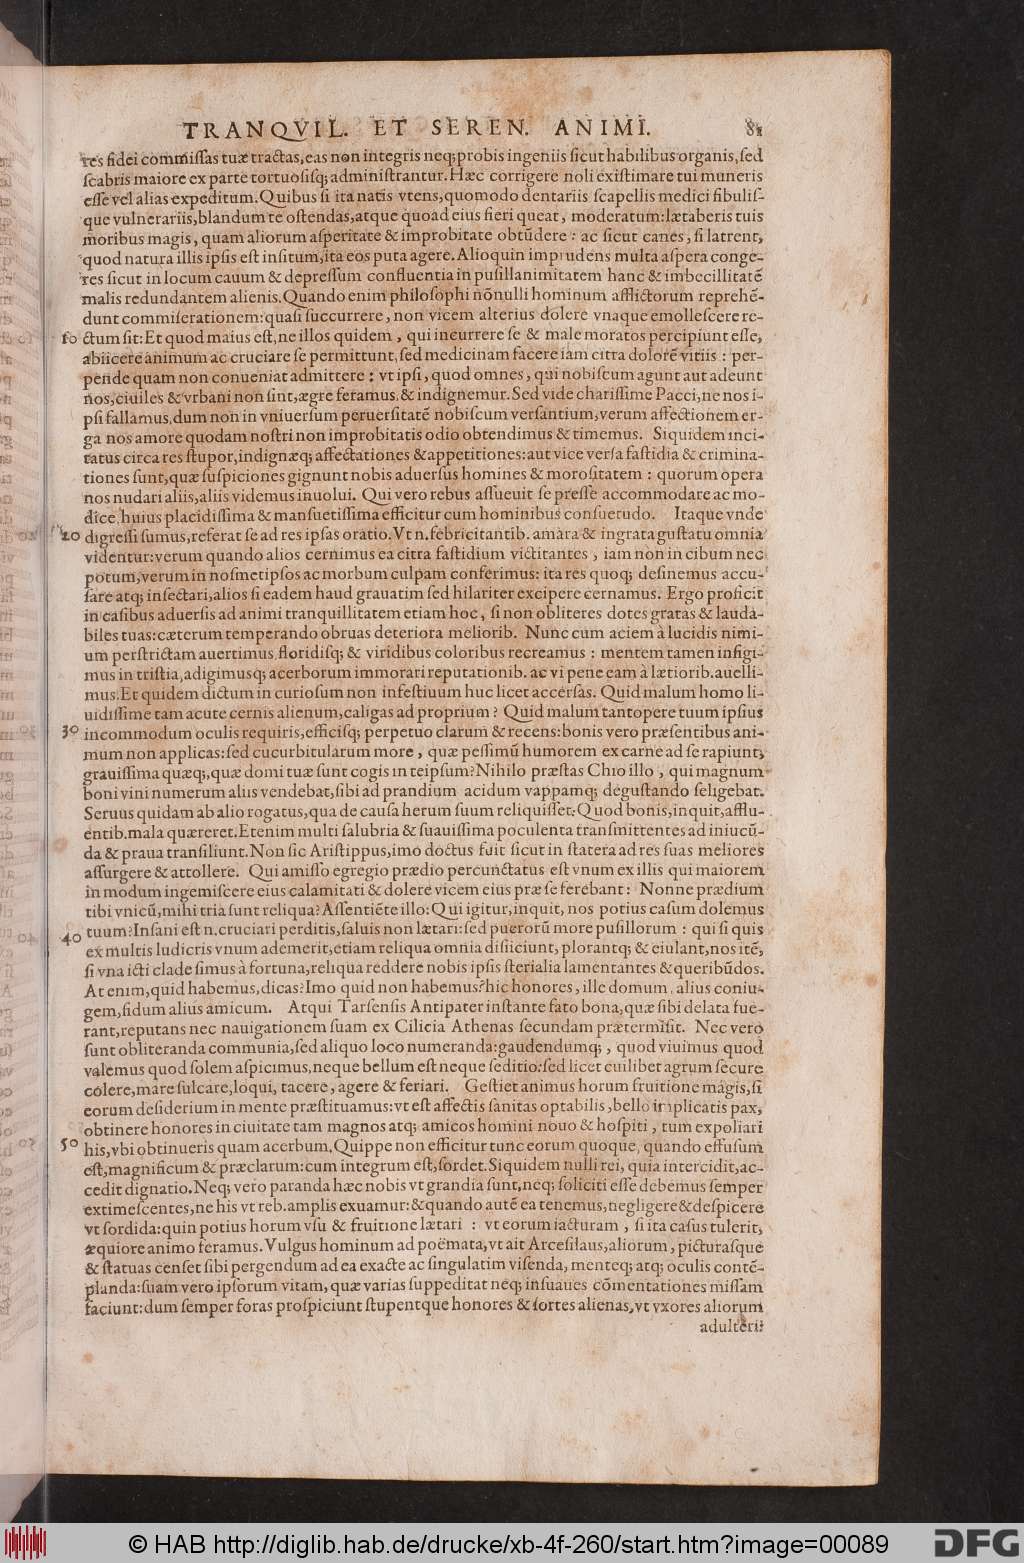 TRANQVIL. ET SEREN. ANIMI. 81
res fidei commissas tuæ tractas, eas non integris neq; probis ingeniis sicut habilibus organis, sed
scabris maiore ex parte tortuosisq; administrantur. Hæc corrigere noli existimare tui muneris
esse vel alias expeditum. Quibus si ita natis vtens, quomodo dentariis scapellis medici fibulis-
que vulnerariis, blandum te ostendas, atque quoad eius fieri queat, moderatum: lætaberis tuis
moribus magis, quam aliorum asperitate & improbitate obtūdere: ac sicut canes, si latrent,
quod natura illis ipsis est insitum, ita eos puta agere. Alioquin imprudens multa aspera conge-
res sicut in locum cauum & depressum confluentia in pusillanimitatem hanc & imbecillitatē
malis redundantem alienis. Quando enim philosophi nōnulli hominum afflictorum reprehē-
dunt commiserationem: quasi succurrere, non vicem alterius dolere vnaque emollescere re-
10 ctum sit: Et quod maius est, ne illos quidem, qui incurrere se & male moratos percipiunt esse,
abiicere animum ac cruciare se permittunt, sed medicinam facere iam citra dolorē vitiis: per-
pende quam non conueniat admittere: vt ipsi, quod omnes, qui nobiscum agunt aut adeunt
nos, ciuiles & vrbani non sint, ægre feramus & indignemur. Sed vide charissime Pacci, ne nos i-
psi fallamus, dum non in vniuersum peruersitatē nobiscum versantium, verum affectionem er-
ga nos amore quodam nostri non improbitatis odio obtendimus & timemus. Siquidem inci-
tatus circa res stupor, indignæq; affectationes & appetitiones: aut vice versa fastidia & crimina-
tiones sunt, quæ suspiciones gignunt nobis aduersus homines & morositatem: quorum opera
nos nudari aliis, aliis videmus inuolui. Qui vero rebus assueuit se presse accommodare ac mo-
dice, huius placidissima & mansuetissima efficitur cum hominibus consuetudo. Itaque vnde
20 digressi sumus, referat se ad res ipsas oratio. Vt n. febricitantib. amara & ingrata gustatu omnia
videntur: verum quando alios cernimus ea citra fastidium victitantes, iam non in cibum nec
potum, verum in nosmetipsos ac morbum culpam conferimus: ita res quoq; desinemus accu-
sare atq; insectari, alios si eadem haud grauatim sed hilariter excipere cernamus. Ergo proficit
in casibus aduersis ad animi tranquillitatem etiam hoc, si non obliteres dotes gratas & lauda-
biles tuas: cæterum temperando obruas deteriora meliorib. Nunc cum aciem à lucidis nimi-
um perstrictam auertimus floridisq; & viridibus coloribus recreamus: mentem tamen infigi-
mus in tristia, adigimusq; acerborum immorari reputationib. ac vi pene eam à lætiorib. auelli-
mus. Et quidem dictum in curiosum non infestiuum huc licet accersas. Quid malum homo li-
uidissime tam acute cernis alienum, caligas ad proprium? Quid malum tantopere tuum ipsius
30 incommodum oculis requiris, efficisq; perpetuo clarum & recens: bonis vero præsentibus ani-
mum non applicas: sed cucurbitularum more, quæ pessimū humorem ex carne ad se rapiunt,
grauissima quæq;, quæ domi tuæ sunt cogis in teipsum? Nihilo præstas Chio illo, qui magnum
boni vini numerum aliis vendebat, sibi ad prandium acidum vappamq; degustando seligebat.
Seruus quidam ab alio rogatus, qua de causa herum suum reliquisset: Quod bonis, inquit, afflu-
entib. mala quæreret. Etenim multi salubria & suauissima poculenta transmittentes ad iniucū-
da & praua transiliunt. Non sic Aristippus, imo doctus fuit sicut in statera ad res suas meliores
assurgere & attollere. Qui amisso egregio prædio percunctatus est vnum ex illis qui maiorem
in modum ingemiscere eius calamitati & dolere vicem eius præ se ferebant: Nonne prædium
tibi vnicū, mihi tria sunt reliqua? Assentiēte illo: Qui igitur, inquit, nos potius casum dolemus
40 tuum? Insani est n. cruciari perditis, saluis non lætari: sed puerorū more pusillorum: qui si quis
ex multis ludicris vnum ademerit, etiam reliqua omnia disiiciunt, plorantq; & eiulant, nos itē,
si vna icti clade simus à fortuna, reliqua reddere nobis ipsis sterialia lamentantes & queribūdos.
At enim, quid habemus, dicas? Imo quid non habemus? hic honores, ille domum, alius coniu-
gem, fidum alius amicum. Atqui Tarsensis Antipater instante fato bona, quæ sibi delata fue-
rant, reputans nec nauigationem suam ex Cilicia Athenas secundam prætermisit. Nec vero
sunt obliteranda communia, sed aliquo loco numeranda: gaudendumq;, quod viuimus quod
valemus quod solem aspicimus, neque bellum est neque seditio: sed licet cuilibet agrum secure
colere, mare sulcare, loqui, tacere, agere & feriari. Gestiet animus horum fruitione magis, si
eorum desiderium in mente præstituamus: vt est affectis sanitas optabilis, bello implicatis pax,
obtinere honores in ciuitate tam magnos atq; amicos homini nouo & hospiti, tum expoliari
50 his, vbi obtinueris quam acerbum. Quippe non efficitur tunc eorum quoque, quando effusum
est, magnificum & præclarum: cum integrum est, sordet. Siquidem nulli rei, quia intercidit, ac-
cedit dignatio. Neq; vero paranda hæc nobis vt grandia sunt, neq; soliciti esse debemus semper
extimescentes, ne his vt reb. amplis exuamur: & quando autē ea tenemus, negligere & despicere
vt sordida: quin potius horum vsu & fruitione lætari: vt eorum iacturam, si ita casus tulerit,
æquiore animo feramus. Vulgus hominum ad poëmata, vt ait Arcesilaus, aliorum, picturasque
& statuas censet sibi pergendum ad ea exacte ac singulatim visenda, menteq; atq; oculis contē-
planda: suam vero ipsorum vitam, quæ varias suppeditat neq; insuaues cōmentationes missam
faciunt: dum semper foras prospiciunt stupentque honores & sortes alienas, vt vxores aliorum
adulteri:
© HAB http://diglib.hab.de/drucke/xb-4f-260/start.htm?image=00089
DFG